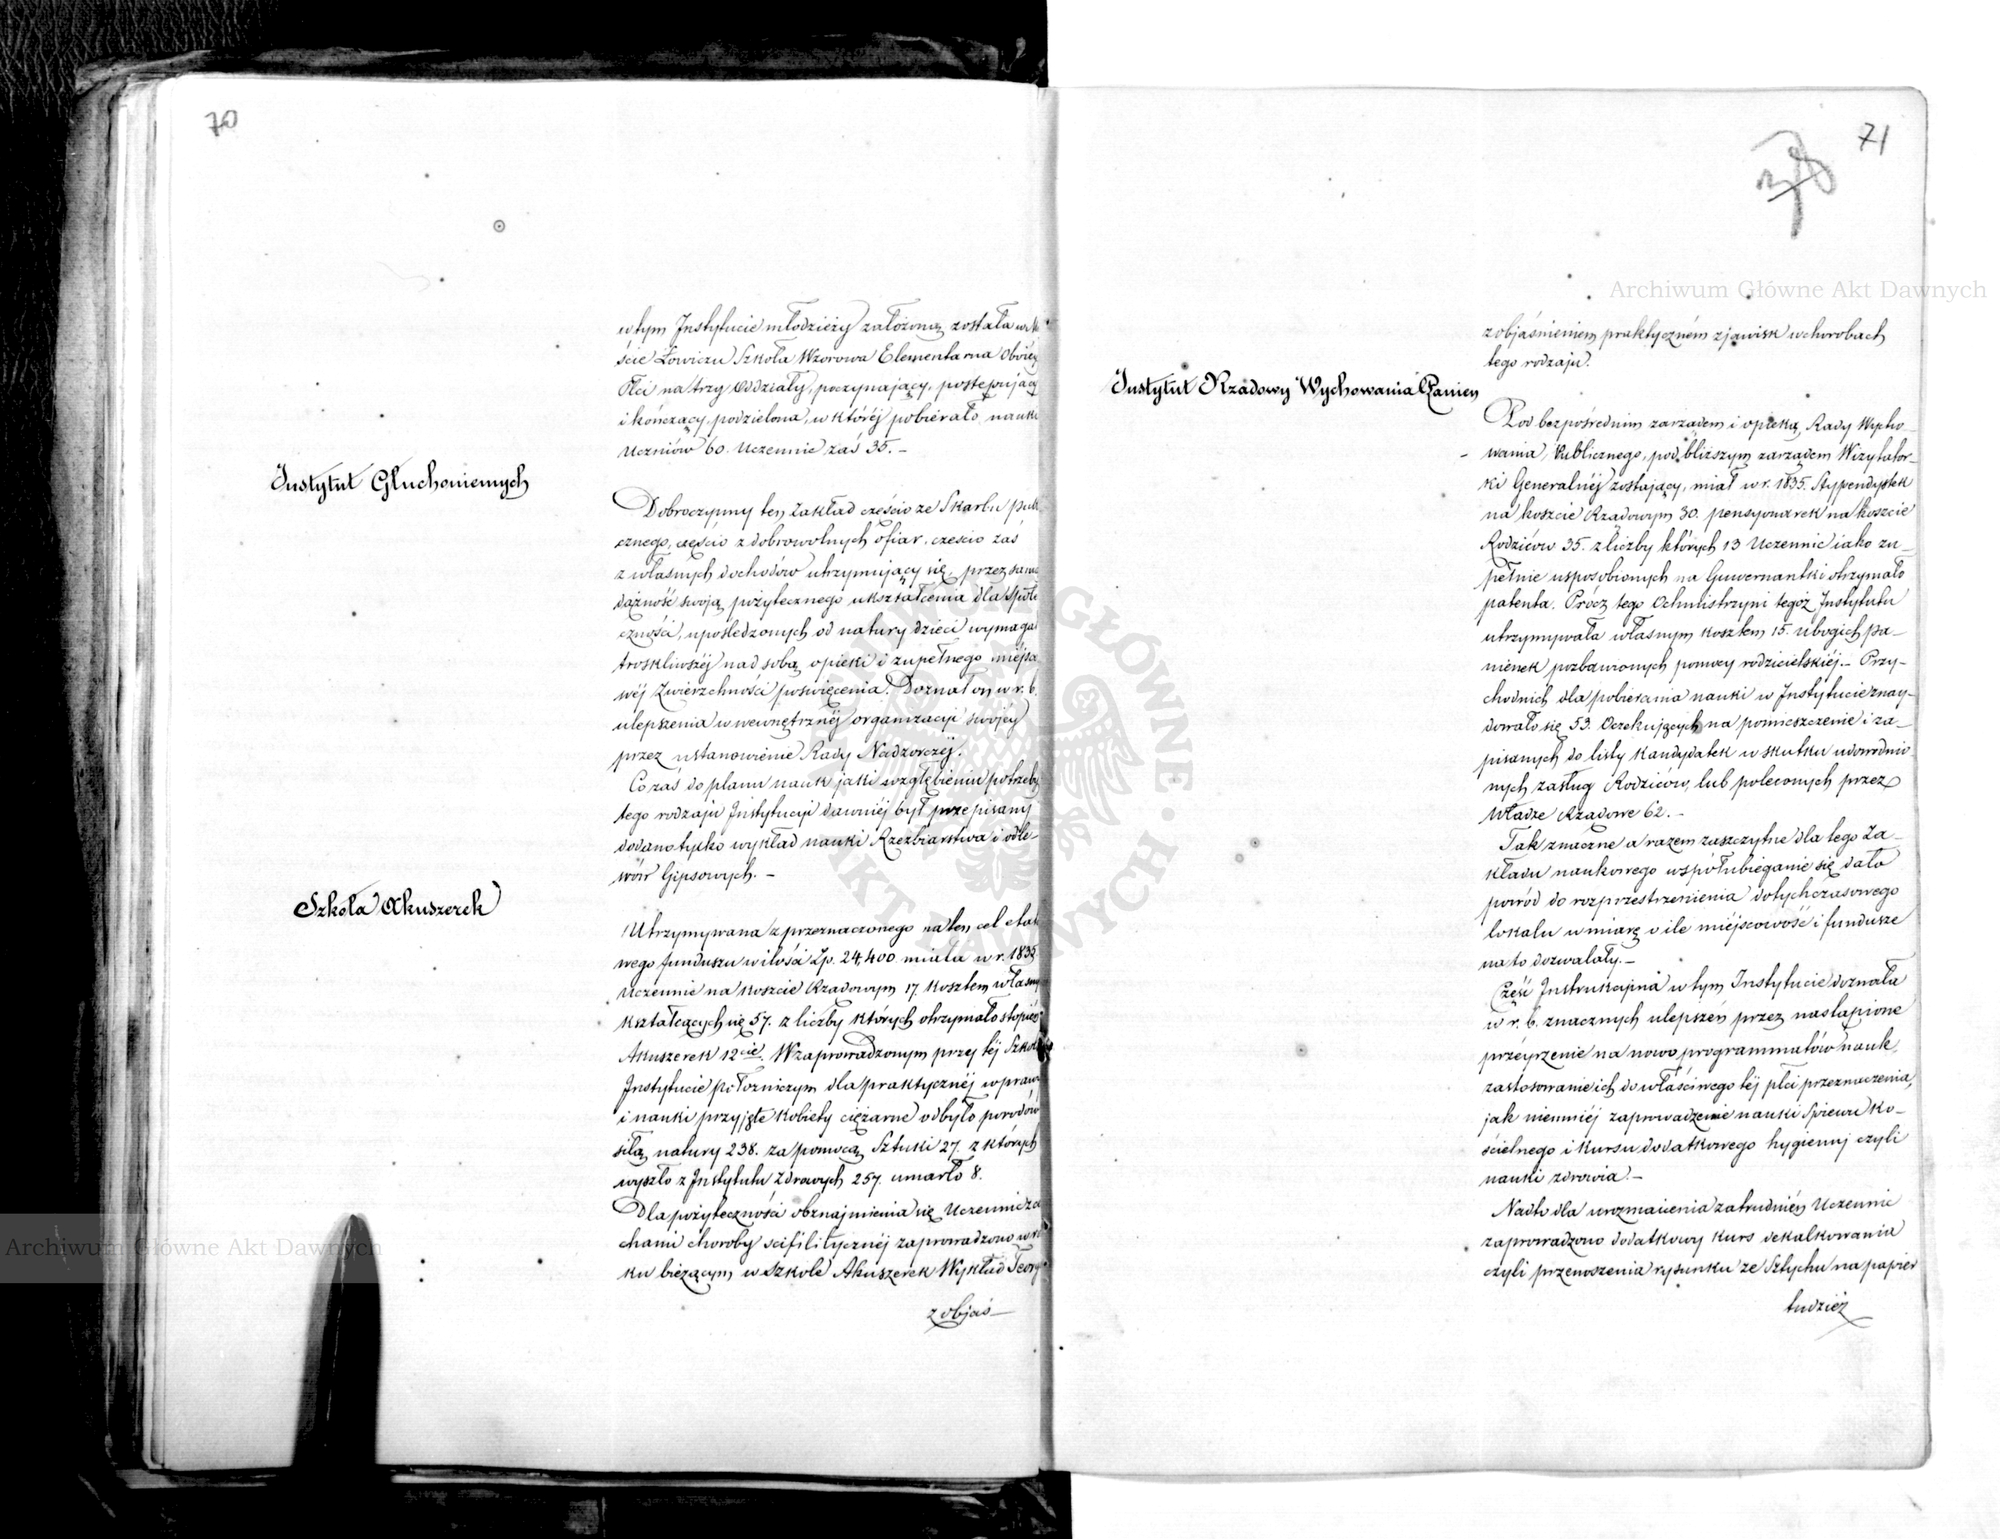 70
w tym Instytucie młodzieży założoną została w Mie
ście Łowiczu Szkoła Wzorowa Elementarna Obojey
Płci na trzy Oddziały, poczynający, postępujący
i kończący, podzielona, w któréj pobierało nauki
Uczniów 60. Uczennic zaś 35. –
Instytut Głuchoniemych
Dobroczynny ten Zakład częścio ze Skarbu publi
cznego, częścio z dobrowolnych ofiar, częścio zaś
z własnych dochodów utrzymujący się, przez samę
dążność swoją pożytecznego ukształcenia dla Społe
czności, upośledzonych od natury dzieci wymaga
troskliwszéj nad sobą opieki i zupełnego miejsco
wéj Zwierzchności poświęcenia. Doznał on w r. b.
ulepszenia w wewnętrznéj organizacyi swojéy
przez ustanowienie Rady Nadzorczéj.
Co zaś do planu nauk jaki w zgłębieniu potrzeby
tego rodzaju Instytucyi dawniéj był przepisany
dodano tylko wykład nauki Rzeźbiarstwa i odle-
wów Gipsowych. –
Szkoła Akuszerek
Utrzymywana z przeznaczonego na ten cel etato
wego funduszu w ilości Zp. 24,400 miała w r. 1835
Uczennic na koszcie Rządowym 17. kosztem własnym
kształcących się 57. z liczby których otrzymało stopień
Akuszerek 12cie. W zaprowadzonym przy téj Szkole
Instytucie położniczym dla praktycznéj wprawy
i nauki przyjęte kobiety ciężarne odbyło porodów
siłą natury 238. za pomocą Sztuki 27. z których
wyszło z Instytutu zdrowych 257. umarło 8.
Dla pożyteczności obznajmienia się Uczennic z ce
chami choroby scifilitycznéj zaprowadzono w ro
ku bieżącym w Szkole Akuszerek Wykład Teory
z objaś–
71
z objaśnieniem praktyczném zjawisk w chorobach
tego rodzaju.
Instytut Rządowy Wychowania Panien
Pod bezpośrednim zarządem i opieką Rady Wycho-
wania Publicznego, pod bliższym zarządem Wizytator-
ki Generalnéj zostający, miał w r. 1835. Stypendystek
na koszcie Rządowym 30. pensyonarek na koszcie
Rodziców 35. z liczby których 13 Uczennic iako zu-
pełnie usposobionych na Guwernantki otrzymało
patenta. Prócz tego Ochmistrzyni tegoż Instytutu
utrzymywała własnym kosztem 15. ubogich pa-
nienek pozbawionych pomocy rodzicielskiéj. – Przy-
chodnich dla pobierania nauki w Instytucie znay-
dowało się 53. Oczekujących na pomieszczenie i za-
pisanych do listy Kandydatek w skutku udowodnio
nych zasług Rodziców, lub poleconych przez
Władze Rządowe 62. –
Tak znaczne a razem zaszczytne dla tego Za-
kładu naukowego współubieganie się dało
powód do rozprzestrzenienia dotychczasowego
lokalu w miarę o ile miéjscowość i fundusze
na to dozwalały. –
Część Instrukcyjna w tym Instytucie doznała
w r. b. znacznych ulepszeń przez nastąpione
przéyrzenie na nowo programmatów nauk,
zastosowanie ich do właściwego téj płci przeznaczenia,
jak niemniéj zaprowadzenie nauki Spiewu Ko-
ścielnego i kursu dodatkowego hygieny czyli
nauki zdrowia. –
Nadto dla urozmaicenia zatrudnień Uczennic
zaprowadzono dodatkowy kurs dekalkowania
czyli przenoszenia rysunku ze Sztychu na papier
tudzież
Archiwum Główne Akt Dawnych
Archiwum Główne Akt Dawnych
GŁÓWNE · AKT DAWNYCH ·